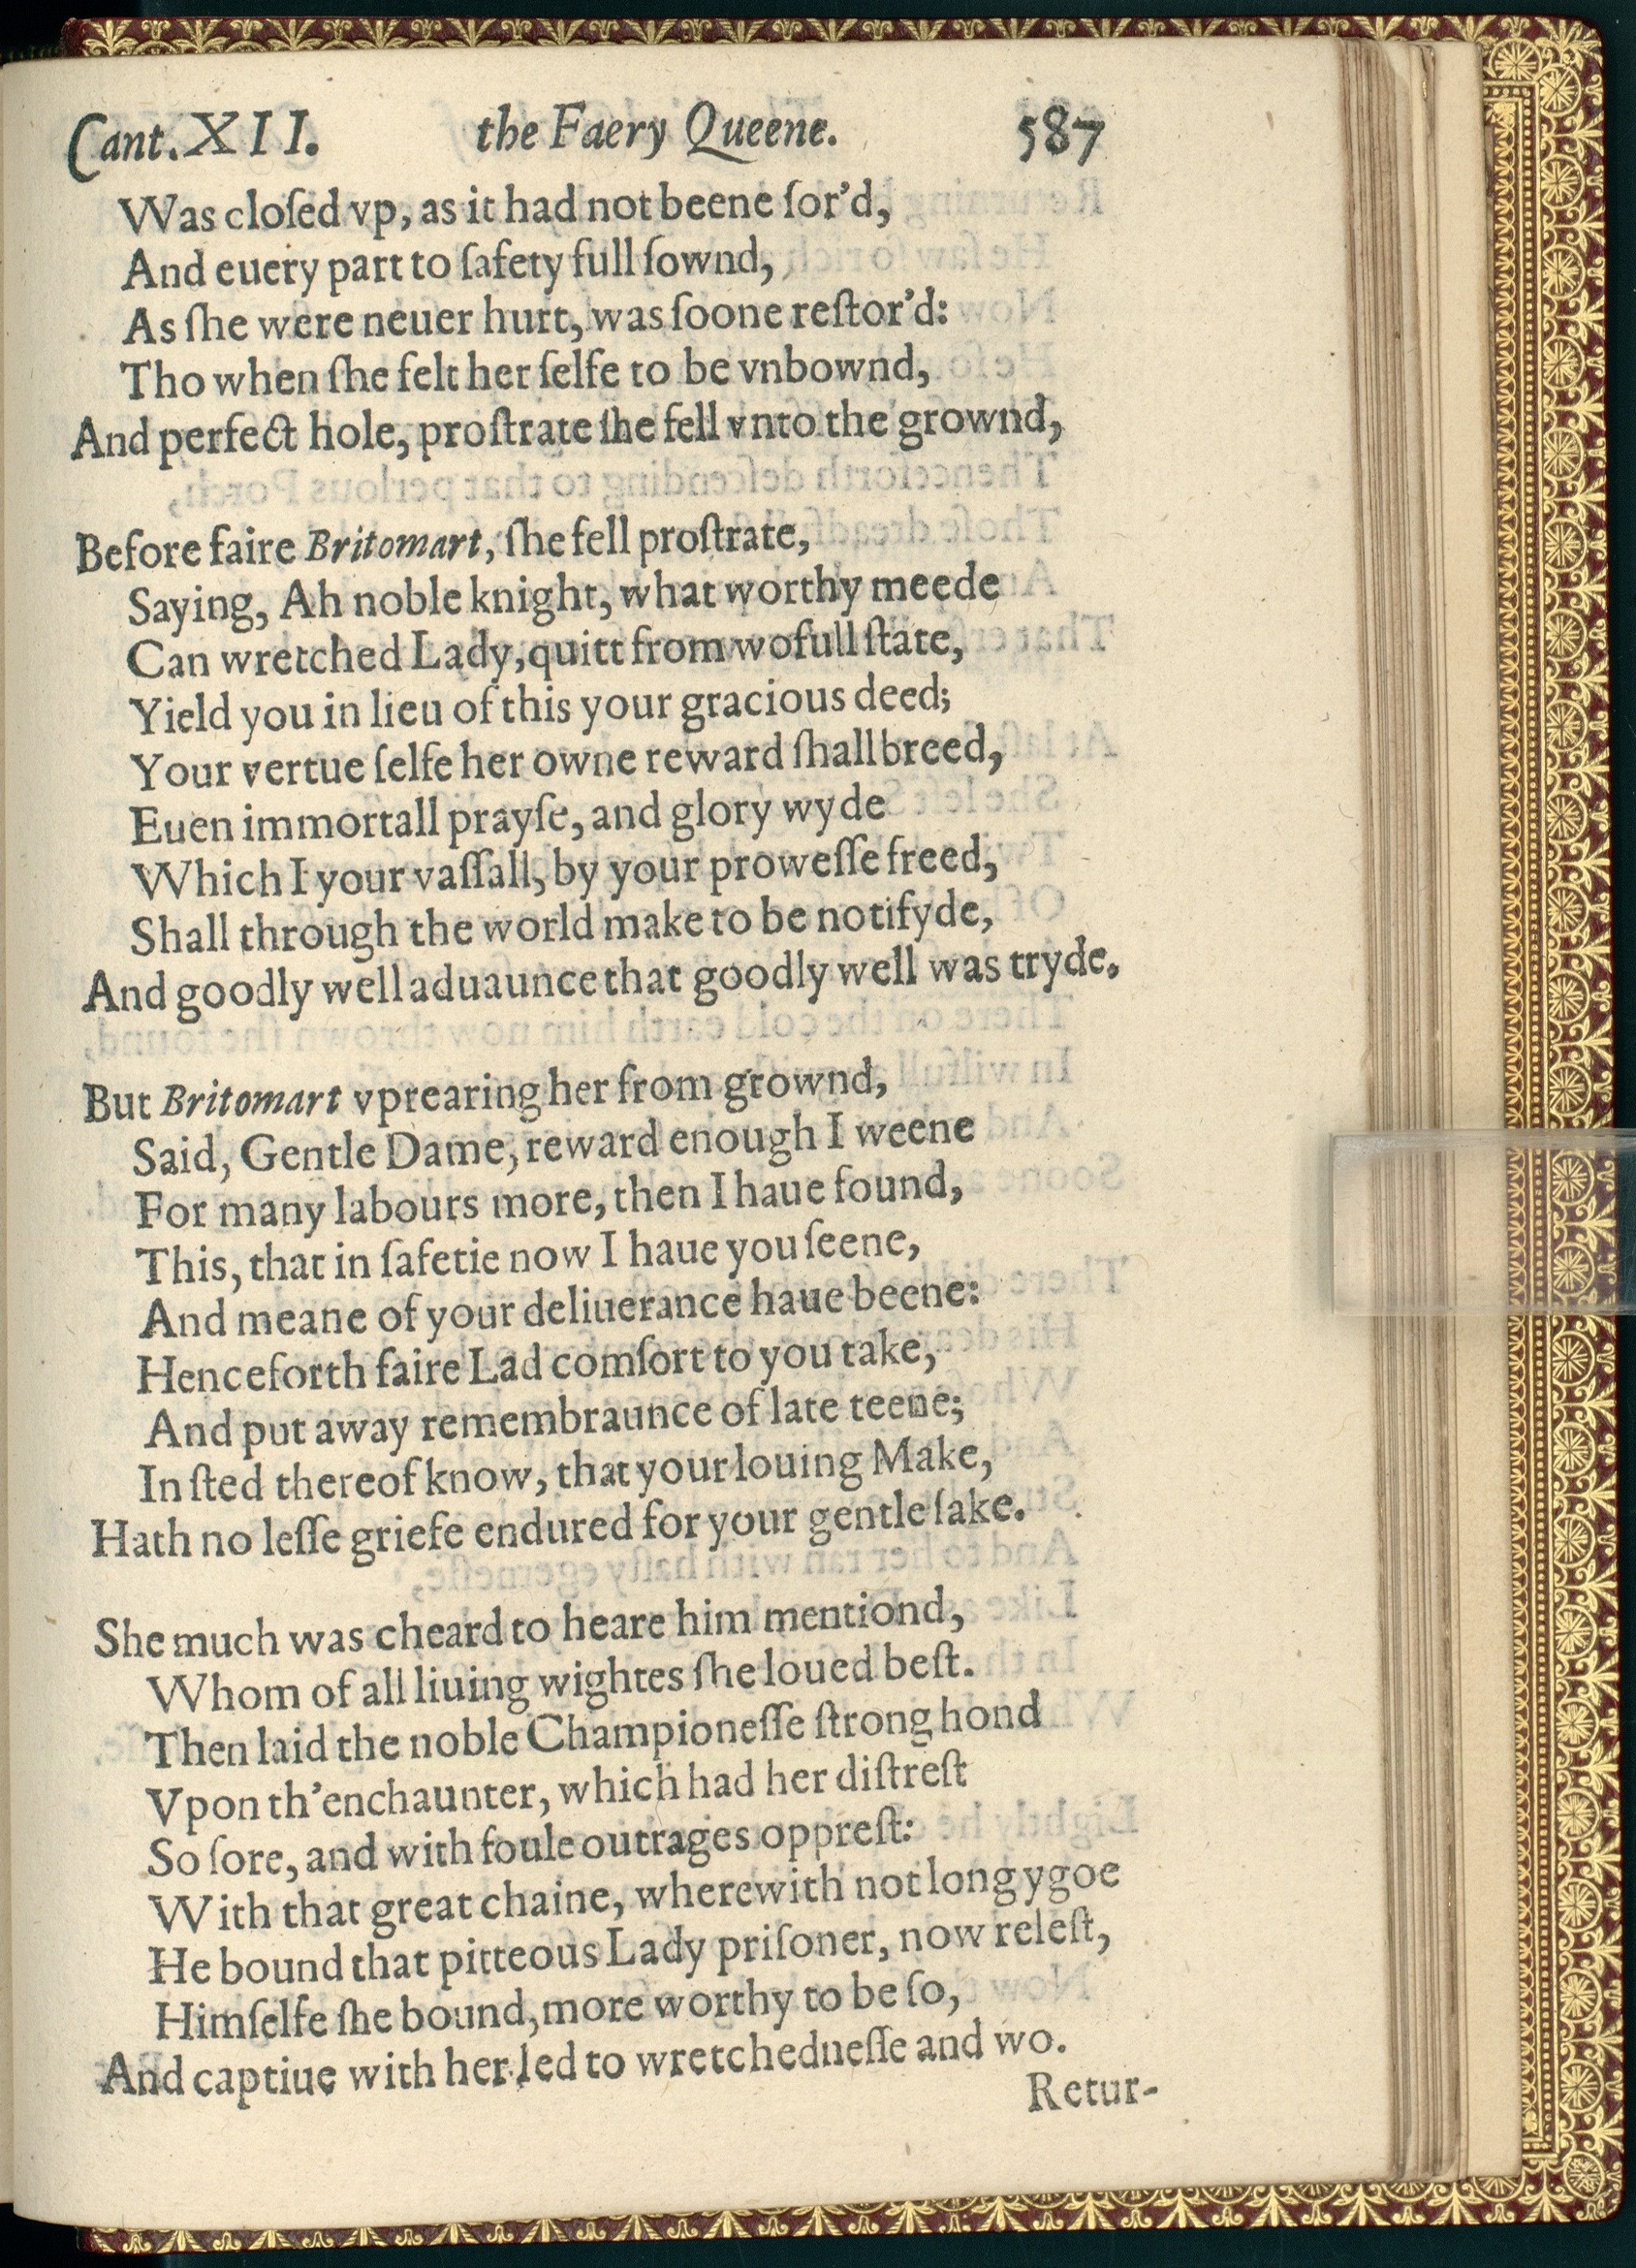 Cant. XII. the Faery Queene. 587
Was cloſed vp, as it had not beene ſor'd,
And euery part to ſafety full ſownd,
As ſhe were neuer hurt, was ſoone reſtor'd:
Tho when ſhe felt her ſelfe to be vnbownd,
And perfect hole, proſtrate ſhe fell vnto the grownd,
Before faire Britomart, ſhe fell proſtrate,
Saying, Ah noble knight, what worthy meede
Can wretched Lady, quitt from wofull ſtate,
Yield you in lieu of this your gracious deed;
Your vertue ſelfe her owne reward ſhall breed,
Euen immortall prayſe, and glory wyde
Which I your vaſſall, by your proweſſe freed,
Shall through the world make to be notifyde,
And goodly well aduaunce that goodly well was tryde.
But Britomart vprearing her from grownd,
Said, Gentle Dame, reward enough I weene
For many labours more, then I haue found,
This, that in ſafetie now I haue you ſeene,
And meane of your deliuerance haue beene:
Henceforth faire Lad comfort to you take,
And put away remembraunce of late teene;
In ſted thereof know, that your louing Make,
Hath no leſſe griefe endured for your gentle ſake.
She much was cheard to heare him mentiond,
Whom of all liuing wightes ſhe loued beſt.
Then laid the noble Championeſſe ſtrong hond
Vpon th'enchaunter, which had her diſtreſt
So ſore, and with foule outrages oppreſt:
With that great chaine, wherewith not long ygoe
He bound that pitteous Lady priſoner, now releſt,
Himſelfe ſhe bound, more worthy to be ſo,
And captiue with her led to wretchedneſſe and wo.
Retur-